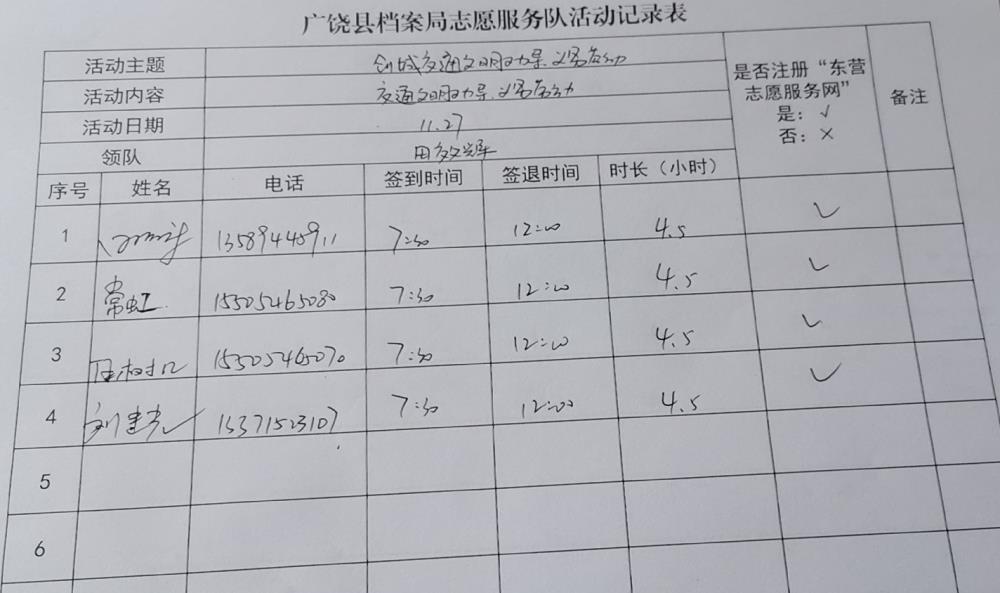 广饶县档案局志愿服务队活动记录表
活动主题 创城交通文明劝导、义务劳动
活动内容 交通文明劝导、义务劳动
活动日期 11.27
领队
是否注册“东营志愿服务网”
是：√
否：×
备注
序号 姓名 电话 签到时间 签退时间 时长（小时）
1 13589445911 7:30 12:00 4.5 √
2 常虹 15505465080 7:30 12:00 4.5 √
3 15505465070 7:30 12:00 4.5 √
4 刘建光 15371523107 7:30 12:00 4.5 √
5
6